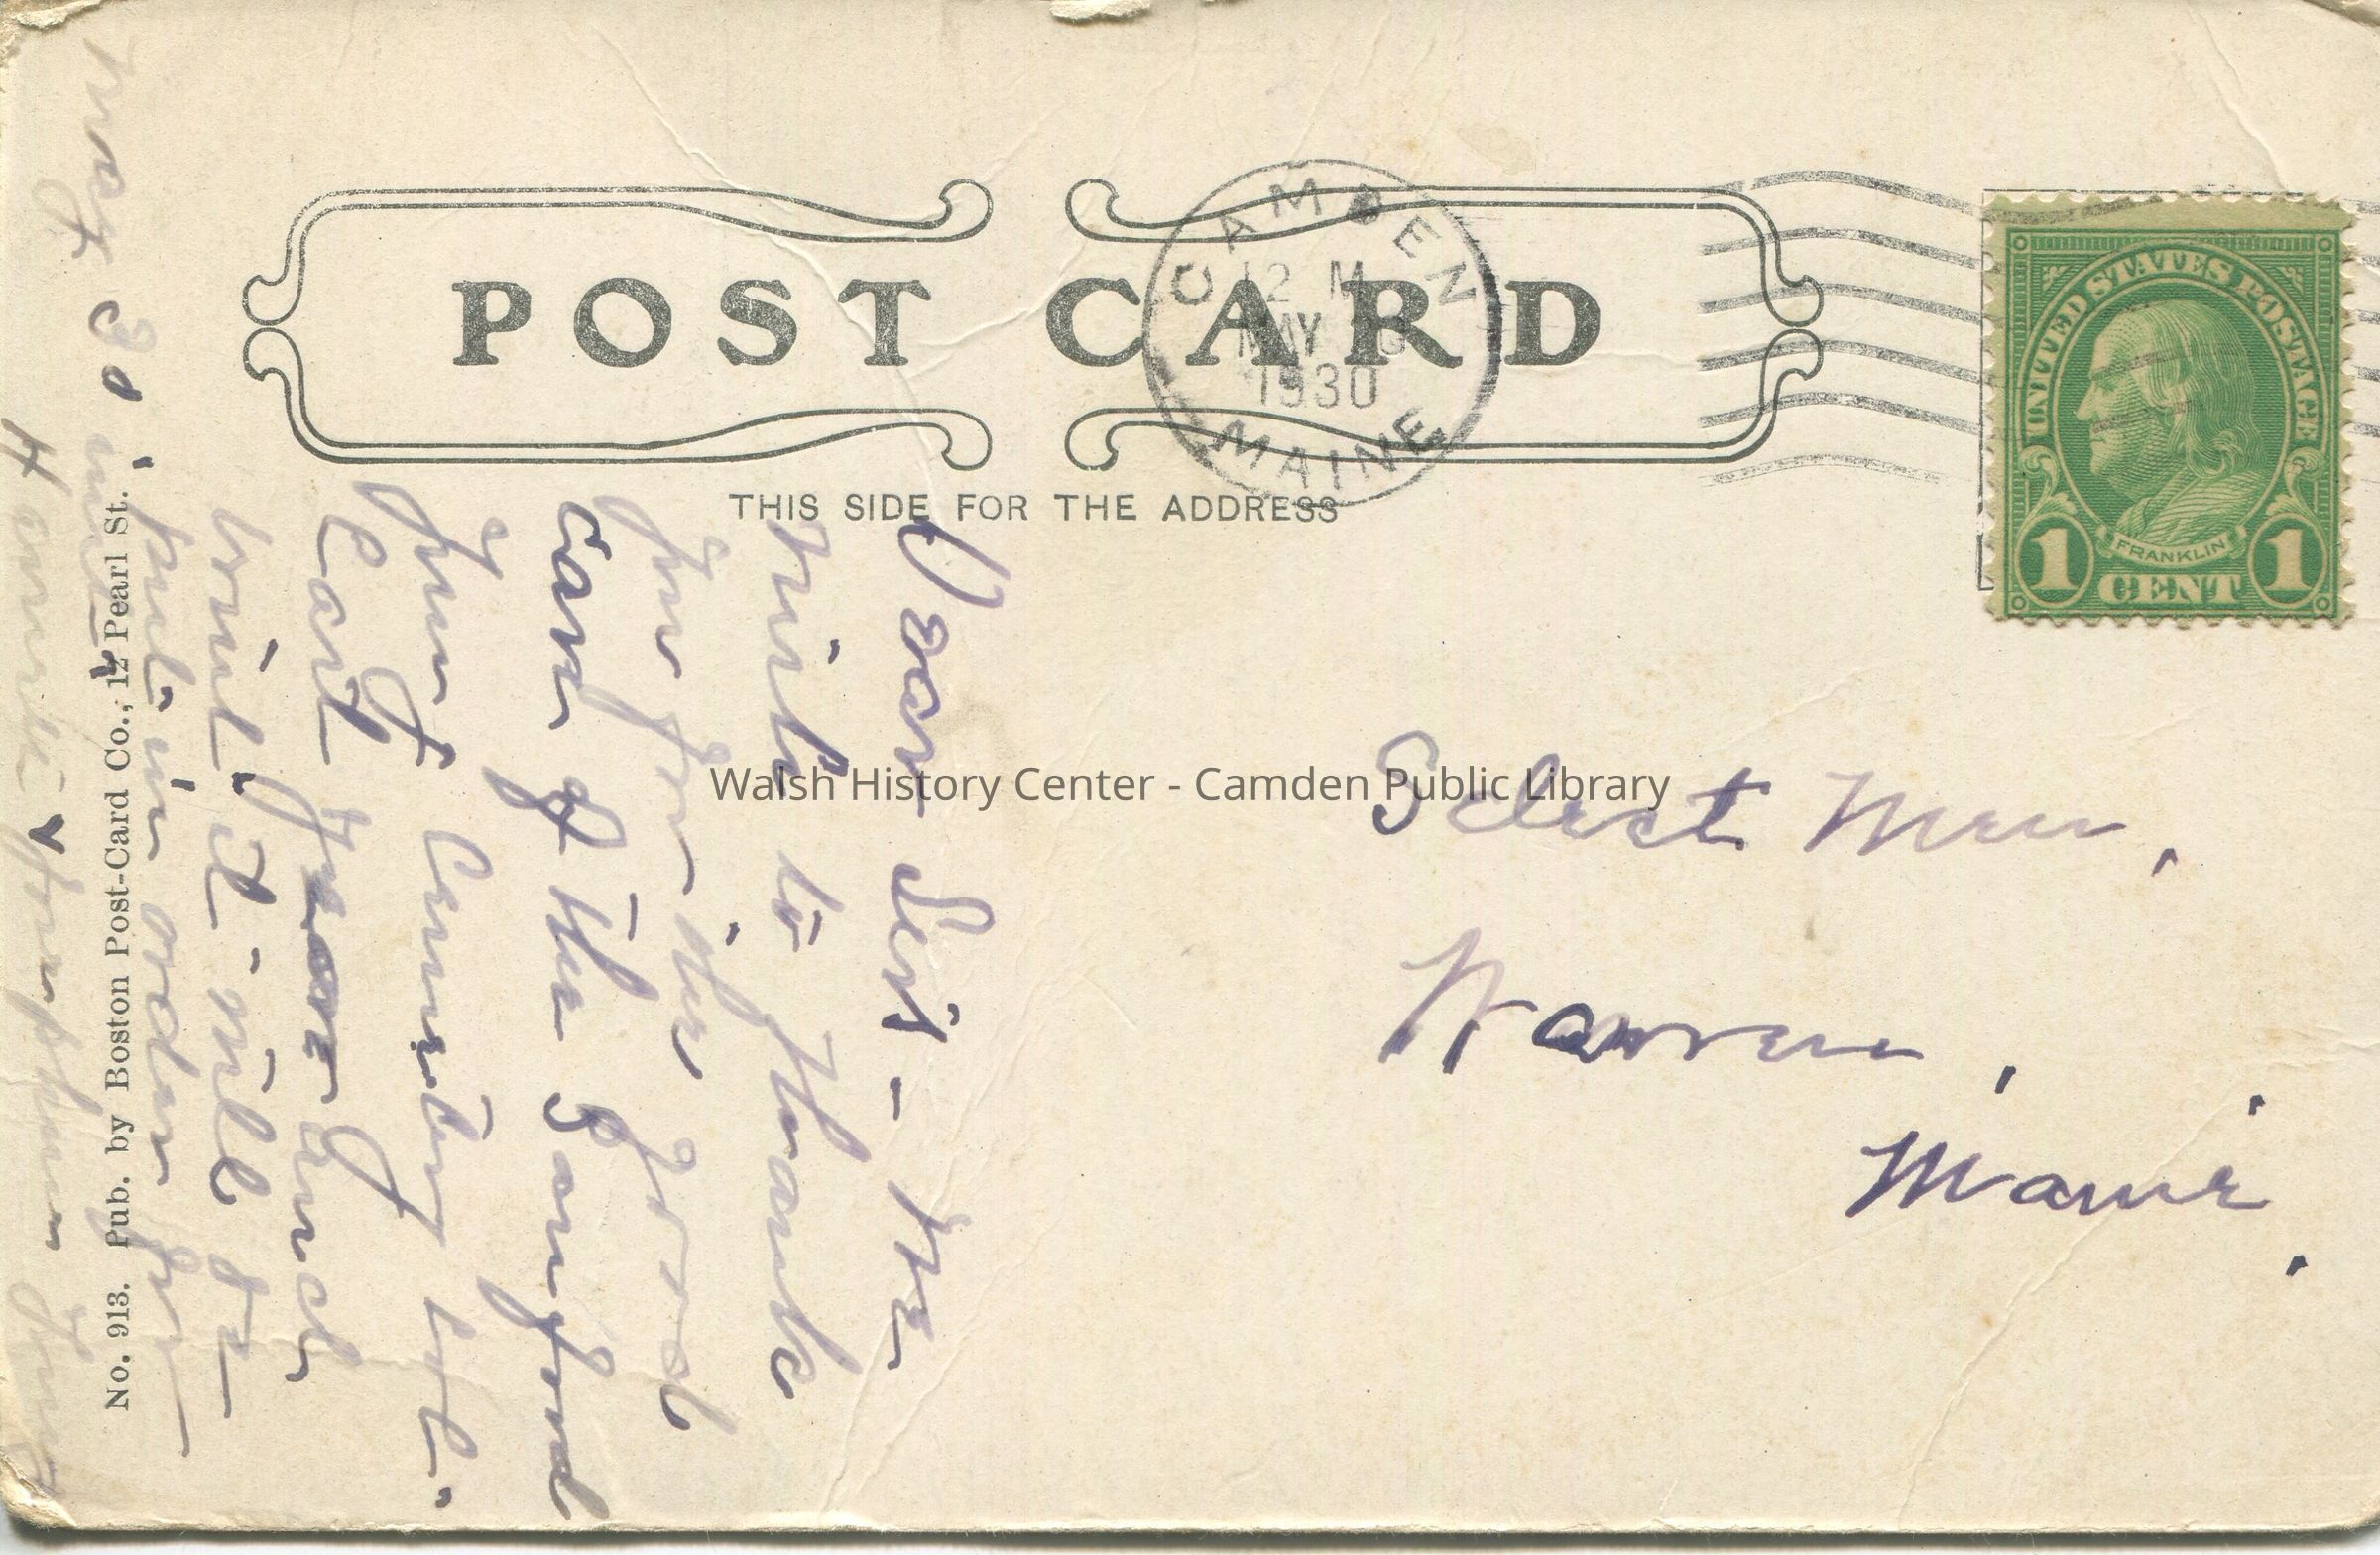 POST CARD
CAMDEN
12 M
MAY
1930
MAINE
THIS SIDE FOR THE ADDRESS
UNITED STATES POSTAGE
FRANKLIN
1 CENT 1
Select Men,
Warren,
Maine.
Dear Sir - We
wish to thank
you for the good
care of the Sanford
Young Cemetery lot.
last year and
trust it will be
put in order for
May 30
Walsh History Center - Camden Public Library
No. 913. Pub. by Boston Post-Card Co., 12 Pearl St.